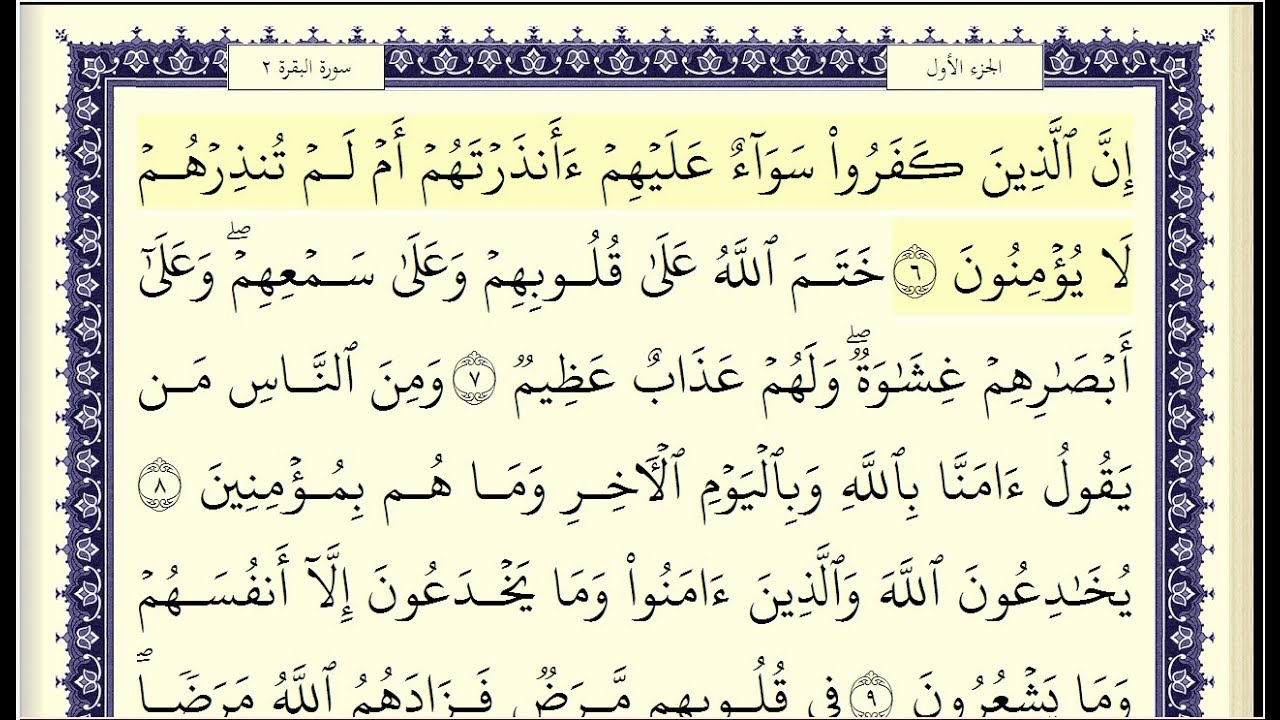 الجزء الأول
سورة البقرة ٢
إِنَّ ٱلَّذِينَ كَفَرُوا۟ سَوَآءٌ عَلَيْهِمْ ءَأَنذَرْتَهُمْ أَمْ لَمْ تُنذِرْهُمْ
لَا يُؤْمِنُونَ ٦ خَتَمَ ٱللَّهُ عَلَىٰ قُلُوبِهِمْ وَعَلَىٰ سَمْعِهِمْ ۖ وَعَلَىٰٓ
أَبْصَـٰرِهِمْ غِشَـٰوَةٌ ۖ وَلَهُمْ عَذَابٌ عَظِيمٌ ٧ وَمِنَ ٱلنَّاسِ مَن
يَقُولُ ءَامَنَّا بِٱللَّهِ وَبِٱلْيَوْمِ ٱلْـَٔاخِرِ وَمَا هُم بِمُؤْمِنِينَ ٨
يُخَـٰدِعُونَ ٱللَّهَ وَٱلَّذِينَ ءَامَنُوا۟ وَمَا يَخْدَعُونَ إِلَّآ أَنفُسَهُمْ
وَمَا يَشْعُرُونَ ٩ فِى قُلُوبِهِم مَّرَضٌ فَزَادَهُمُ ٱللَّهُ مَرَضًا ۖ